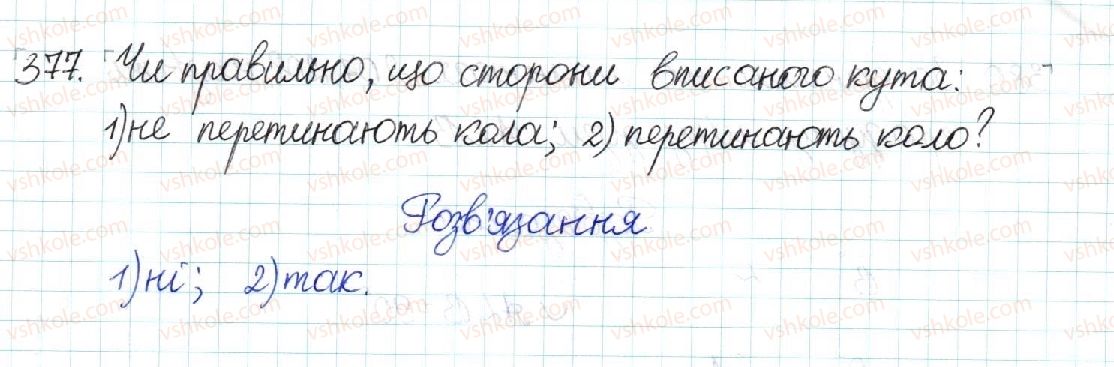 377. Чи правильно, що сторони вписаного кута:
1) не перетинають кола; 2) перетинають коло?
Розв'язання
1) ні; 2) так.